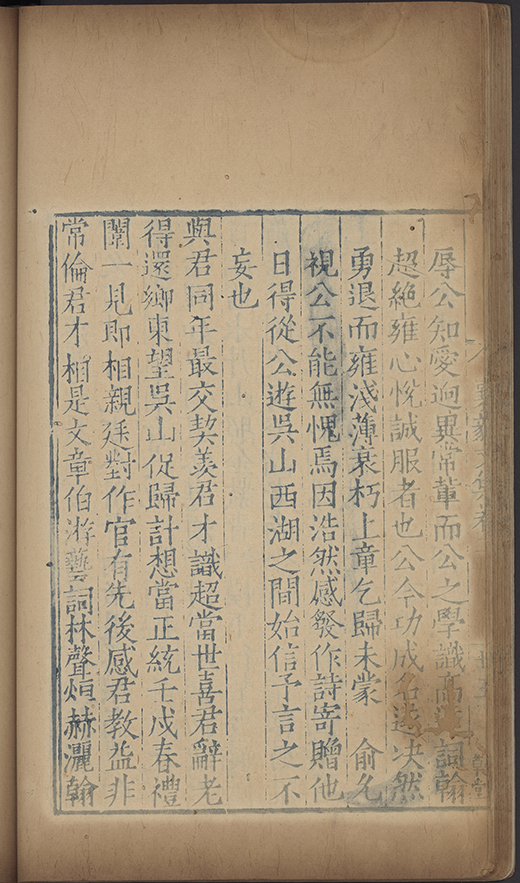 辱公知愛迥異常輩而公之學識高詞翰
超絶雍心悅誠服者也公今功成名遂决然
勇退而雍淺薄衰朽上章乞歸未蒙　俞允
視公不能無愧焉因浩然感發作詩寄贈他
日得從公遊吳山西湖之間始信予言之不
妄也
與君同年最交契羨君才識超當世喜君辭老
得還鄉東望吳山促歸計想當正統壬戌春禮
闈一見即相親廷對作官有先後感君教益非
常倫君才相是文章伯游藝詞林聲烜赫灑翰